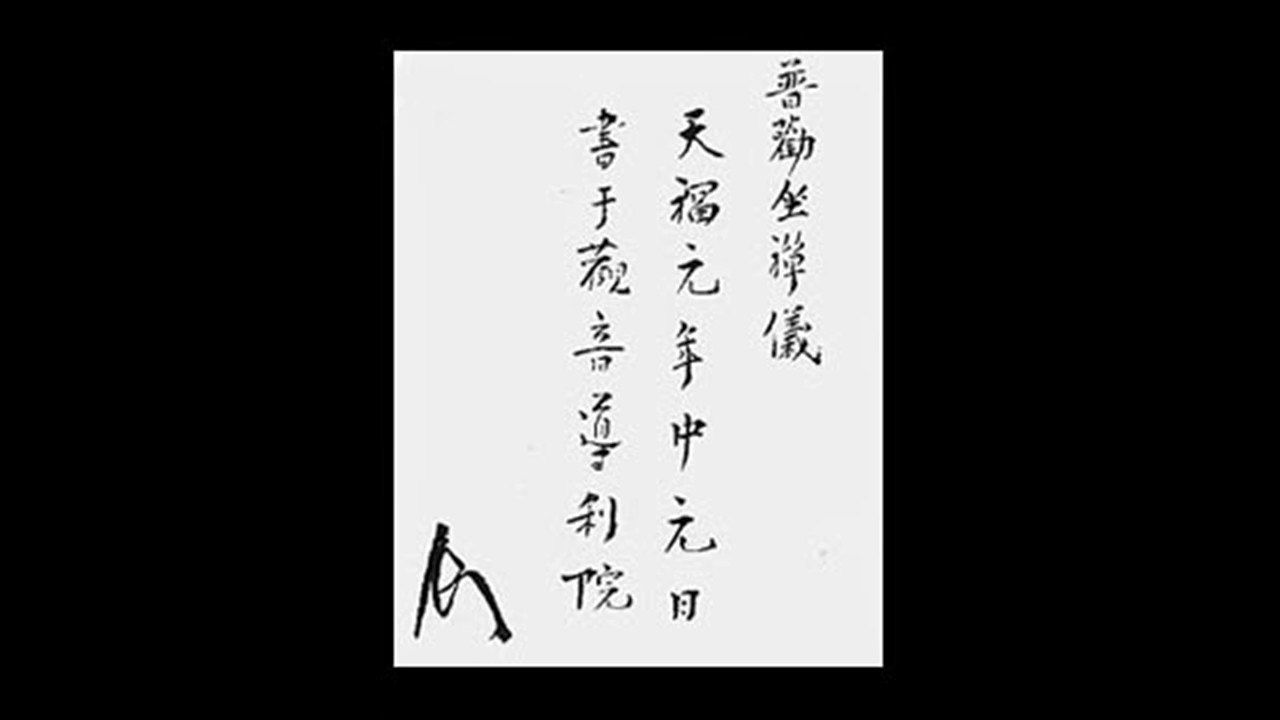 普勸坐禪儀
天福元年中元日
書于觀音導利院